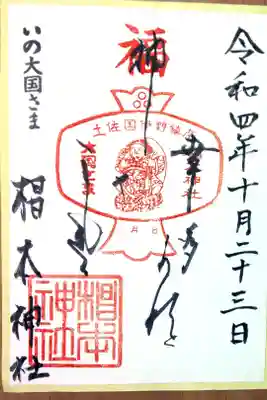 令和四年十月二十三日
福
神
土佐国伊野鎮座
大国さま
幸多
月 日
いの大国さま
椙本神社
椙本
神社